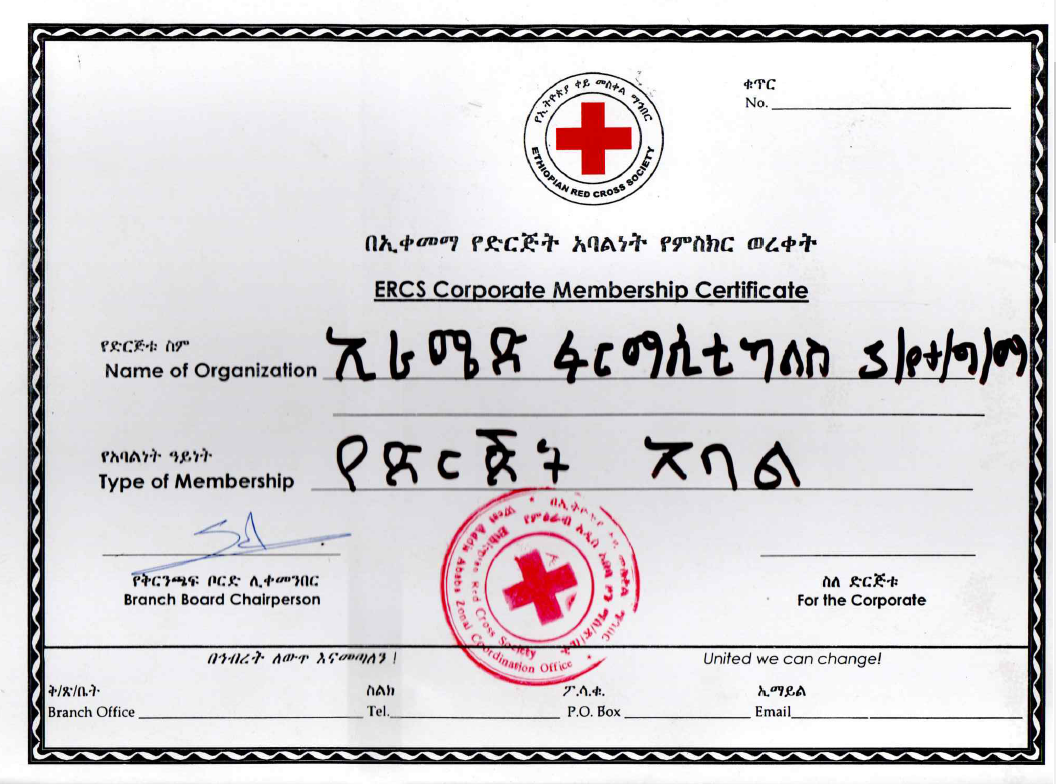 የኢትዮጵያ ቀይ መስቀል ማኅበር
ETHIOPIAN RED CROSS SOCIETY
ቁጥር
No.
በኢቀመማ የድርጅት አባልነት የምስክር ወረቀት
ERCS Corporate Membership Certificate
የድርጅቱ ስም
Name of Organization ኢራሜድ ፋርማሲቲካልስ ኃ/የተ/ግ/ማ
የአባልነት ዓይነት
Type of Membership የድርጅት አባል
የቅርንጫፍ ቦርድ ሊቀመንበር
Branch Board Chairperson
ስለ ድርጅቱ
For the Corporate
Red Cross Society
Addis Ababa Zonal Coordination Office
በኅብረት ለውጥ እናመጣለን !
United we can change!
ቅ/ጽ/ቤት ስልክ ፖ.ሳ.ቁ. ኢ.ማይል
Branch Office Tel. P.O. Box Email